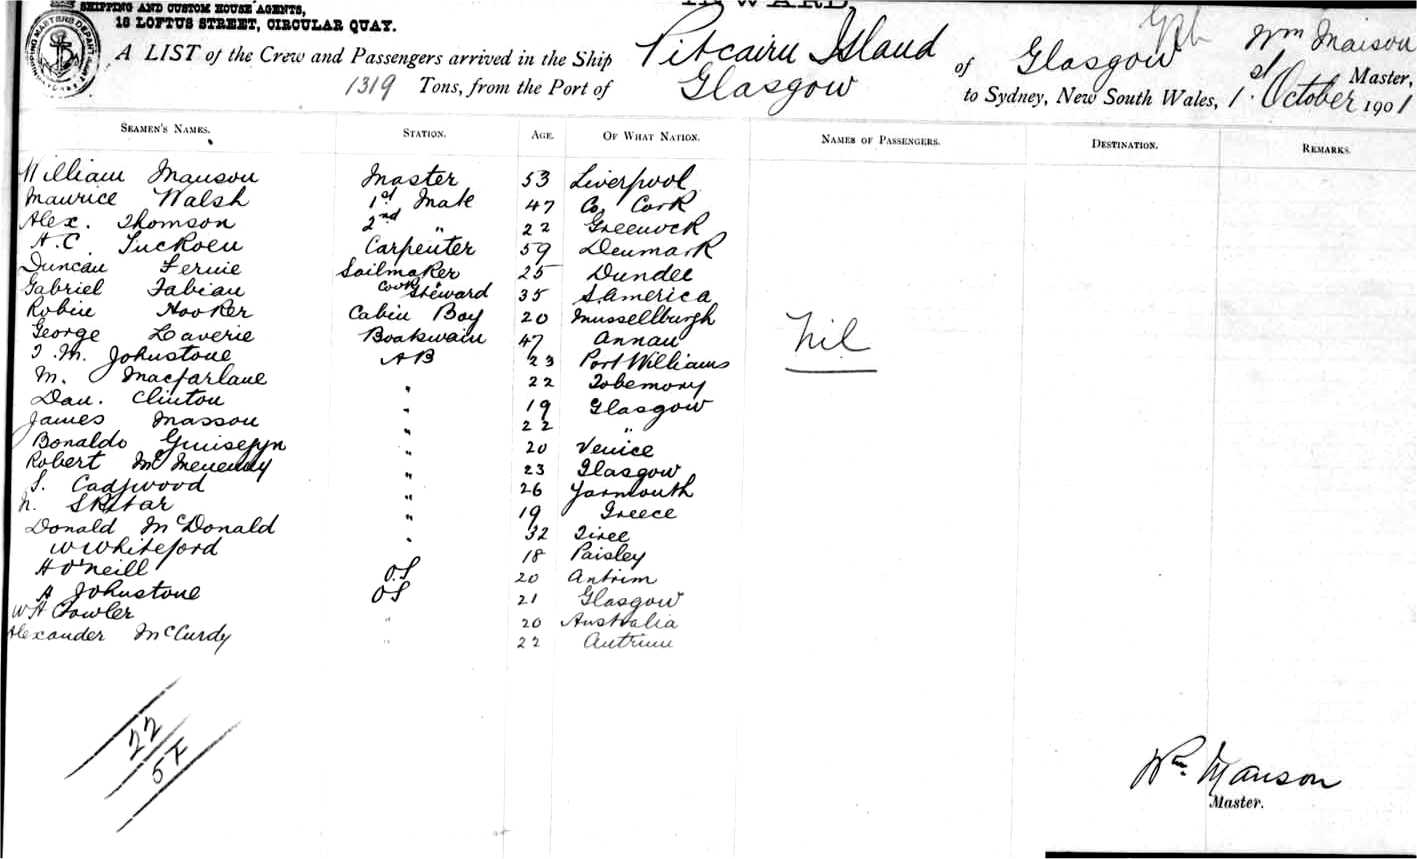 SHIPPING AND CUSTOM HOUSE AGENTS,
18 LOFTUS STREET, CIRCULAR QUAY.
A LIST of the Crew and Passengers arrived in the Ship Pitcairn Island of Glasgow Wm Manson Master,
1319 Tons, from the Port of Glasgow to Sydney, New South Wales, 1st October 1901
SEAMEN'S NAMES. STATION. AGE. OF WHAT NATION. NAMES OF PASSENGERS. DESTINATION. REMARKS.
William Manson Master 53 Liverpool
Maurice Walsh 1st Mate 47 Co. Cork
Alex. Thomson 2nd " 22 Greenock
A.C. 59 Carpenter Denmark
Duncan Fernie Sailmaker 25 Dundee
Gabriel Fabian Cook & Steward 35 S. America
Robin Hooker Cabin Boy 20 Mussellburgh
George Laverie Boatswain 47 Annan
Nil
J. M. Johnstone AB 23 Port Williams
M. Macfarlane " 22 Tobermory
Dan. Clinton " 19 Glasgow
James Masson " 22 "
Bonaldo " 20 Venice
Robert " 23 Glasgow
S. Cadywood " 26 Yarmouth
N. " 19 Greece
Donald McDonald " 32 Tiree
W Whiteford " 18 Paisley
H O'Neill O.S 20 Antrim
A Johnstone OS 21 Glasgow
WH Fowler " 20 Australia
Alexander McCurdy " 22 Antrim
22
Wm. Manson
Master.